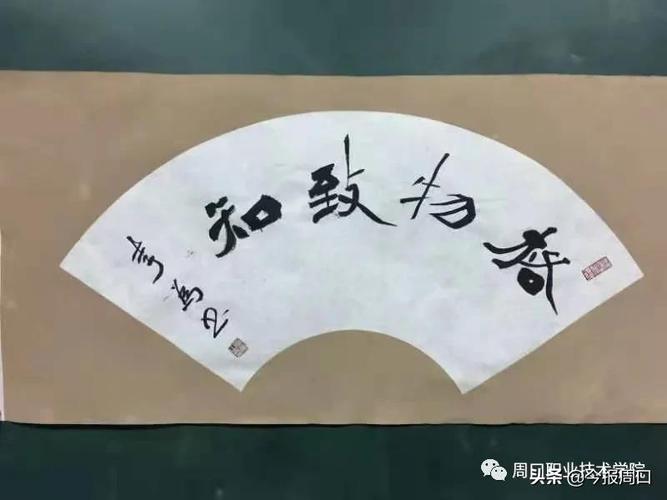 格物致知
书
周口职业技术学院
头条 @今报周口